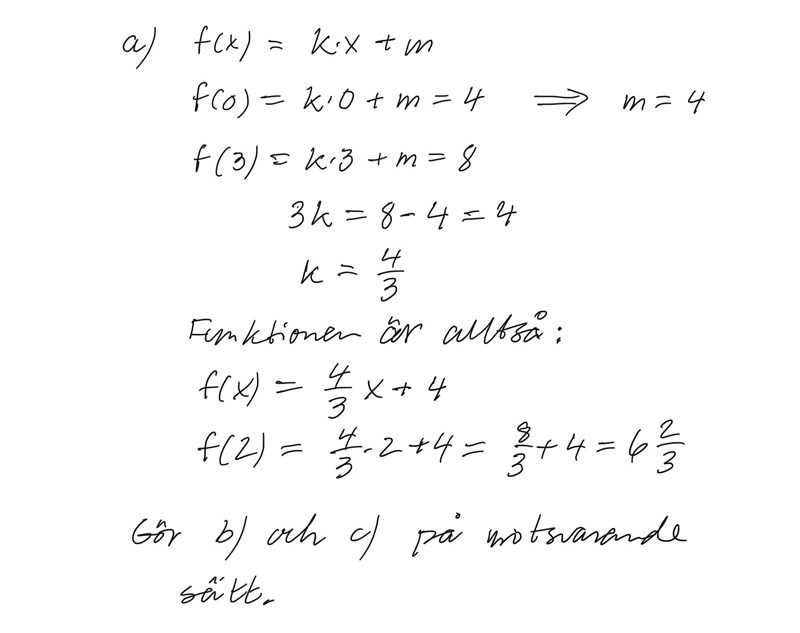 a) f(x) = k·x + m
f(0) = k·0 + m = 4 ⟹ m = 4
f(3) = k·3 + m = 8
3k = 8 - 4 = 4
k = 4/3
Funktionen är alltså:
f(x) = 4/3 x + 4
f(2) = 4/3 · 2 + 4 = 8/3 + 4 = 6 2/3
Gör b) och c) på motsvarande
sätt.